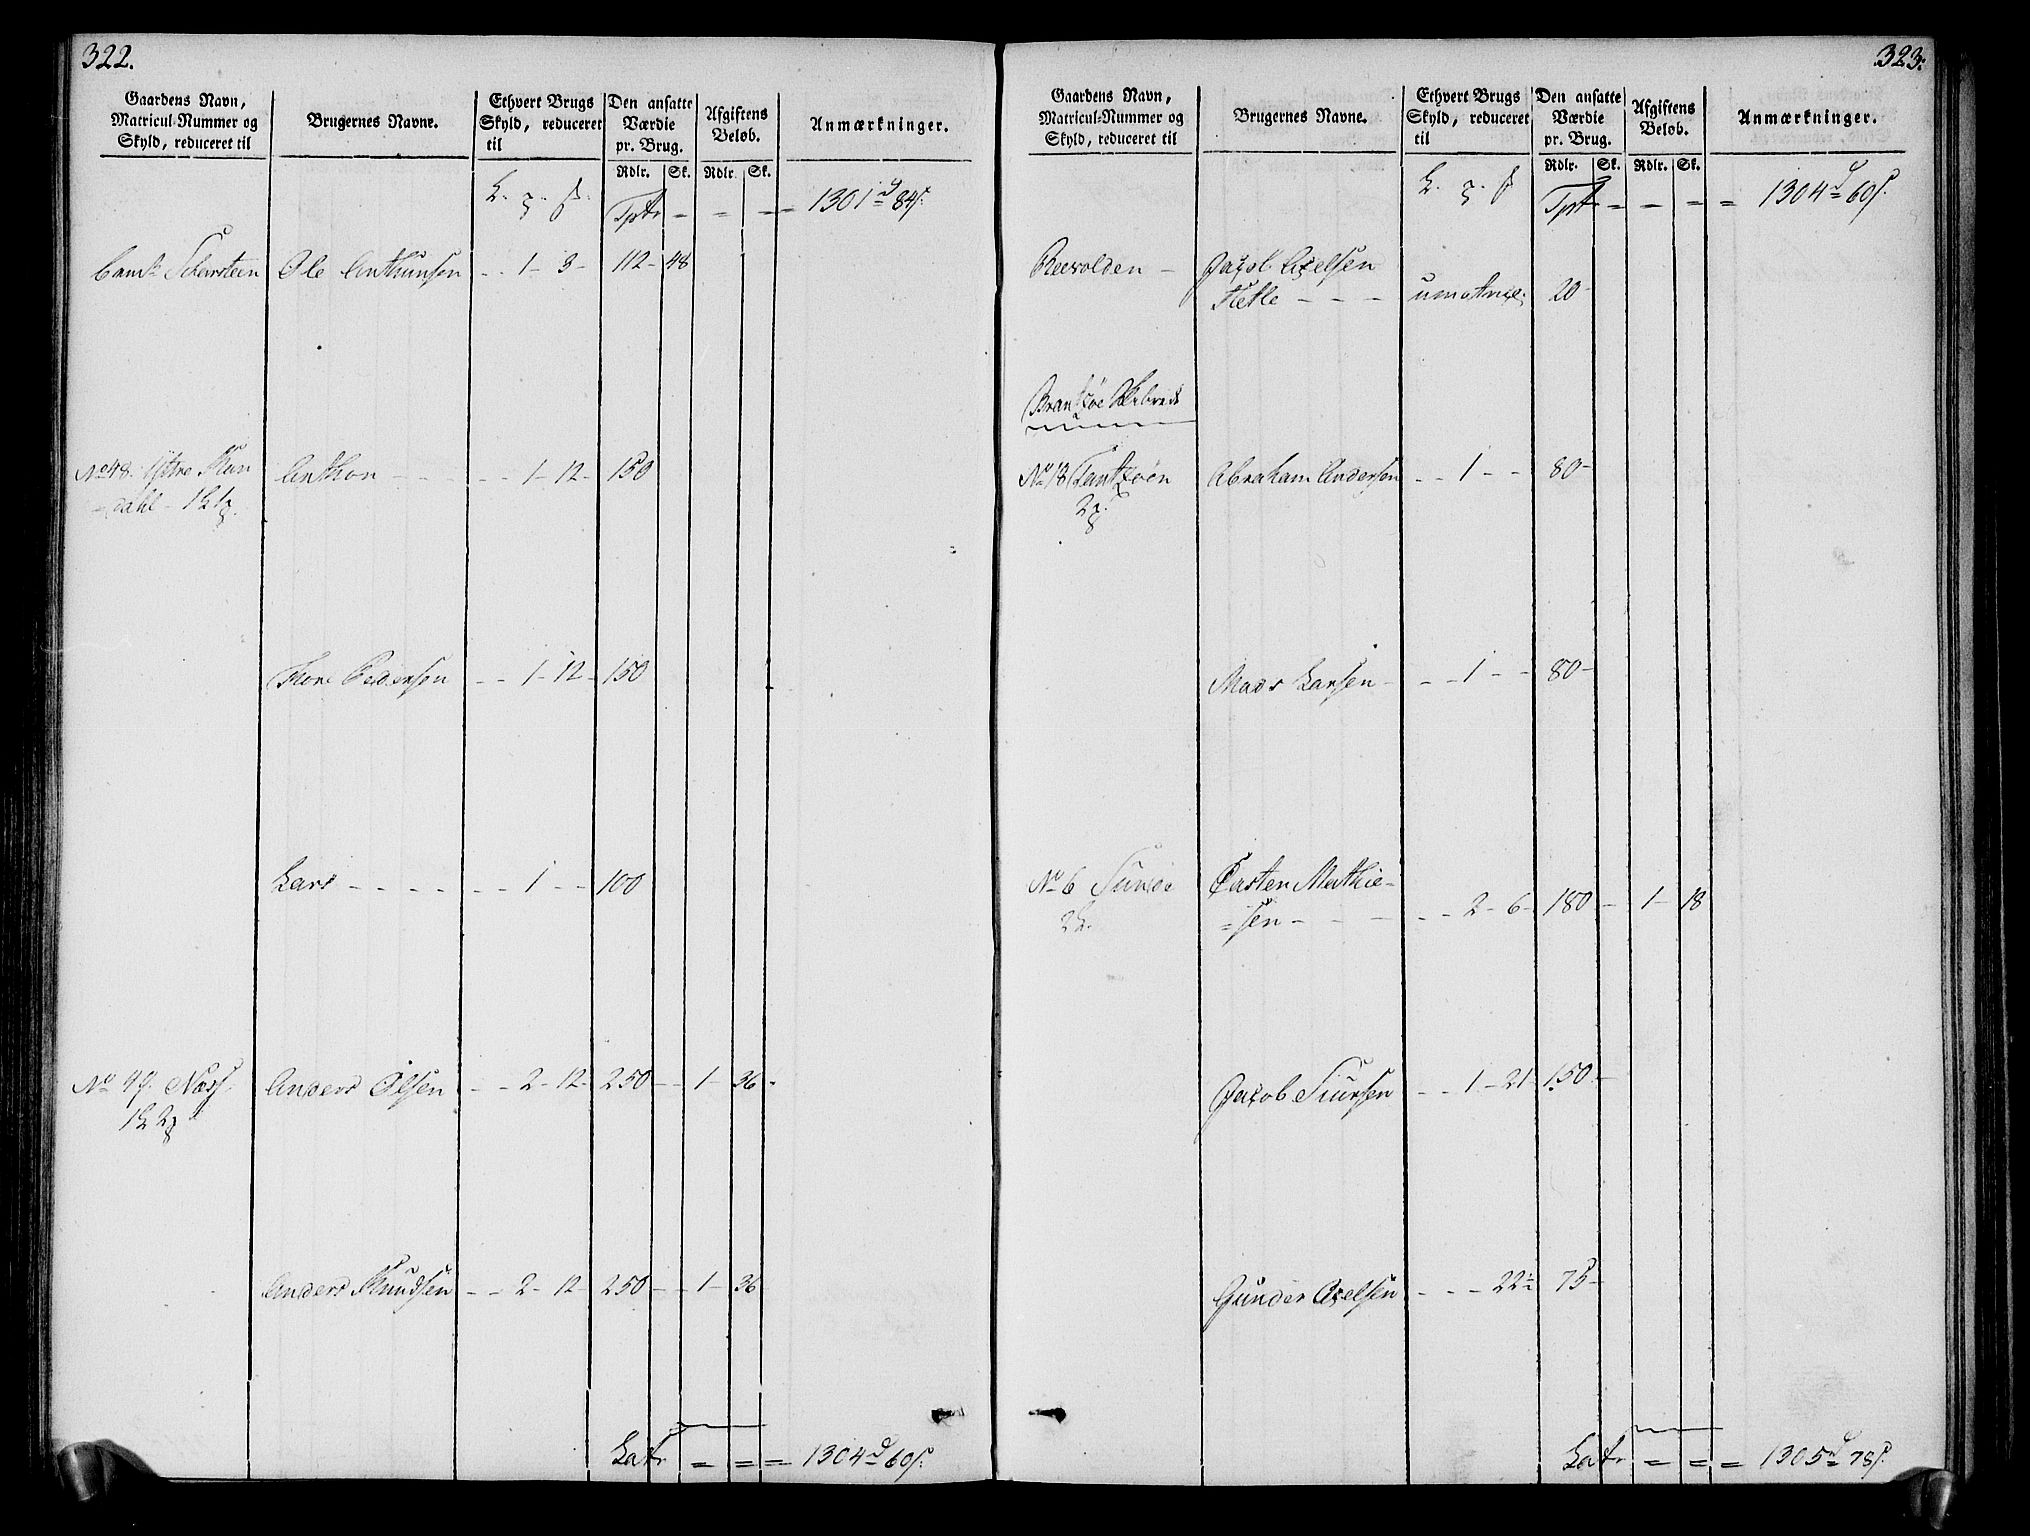 322.
Gaardens Navn, Matricul-Nummer og Skyld, reduceret til
Brugernes Navne.
Ethvert Brugs Skyld, reduceret til
Den ansatte Værdie pr. Brug.
Afgiftens Beløb.
Anmærkninger.
Rdlr. Sk. Rdlr. Sk.
Tptr - - - 1301 d 84 s.
Ole Anthunsen - - 1 - 3 - 112 - 48
No 48. Anthon - - - - 1 - 12 - 150
- dahl -
Thore Pedersen - - 1 - 12 - 150
Lars - - - - - - 1 - - 100
No 49. Næss. Anders Olsen - - 2 - 12 - 250 - - 1 - 36 -
Anders Knudsen - - 2 - 12 - 250 - - 1 - 36
Latr = = = 1304 d 60 s.
323.
Gaardens Navn, Matricul-Nummer og Skyld, reduceret til
Brugernes Navne.
Ethvert Brugs Skyld, reduceret til
Den ansatte Værdie pr. Brug.
Afgiftens Beløb.
Anmærkninger.
Rdlr. Sk. Rdlr. Sk.
Tptr = - - = 1304 d 60 s.
Reevolden - Jacob Axelsen
- - - 20 -
No 18 Abraham Andersen - - 1 - - 80 -
Mads Larsen - - - 1 - - 80 -
No 6 Casten Mathie=
=sen - - - - - 2 - 6 - 180 - 1 - 18
Jacob - - 1 - 21 - 150 -
Gunder Axelsen - - - 22½ 75 -
Latr = = = 1305 d 78 s.